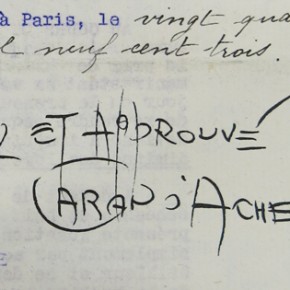 à Paris, le vingt qua
l neuf cent trois.
ET APPROUVE
CARAN D'ACHE